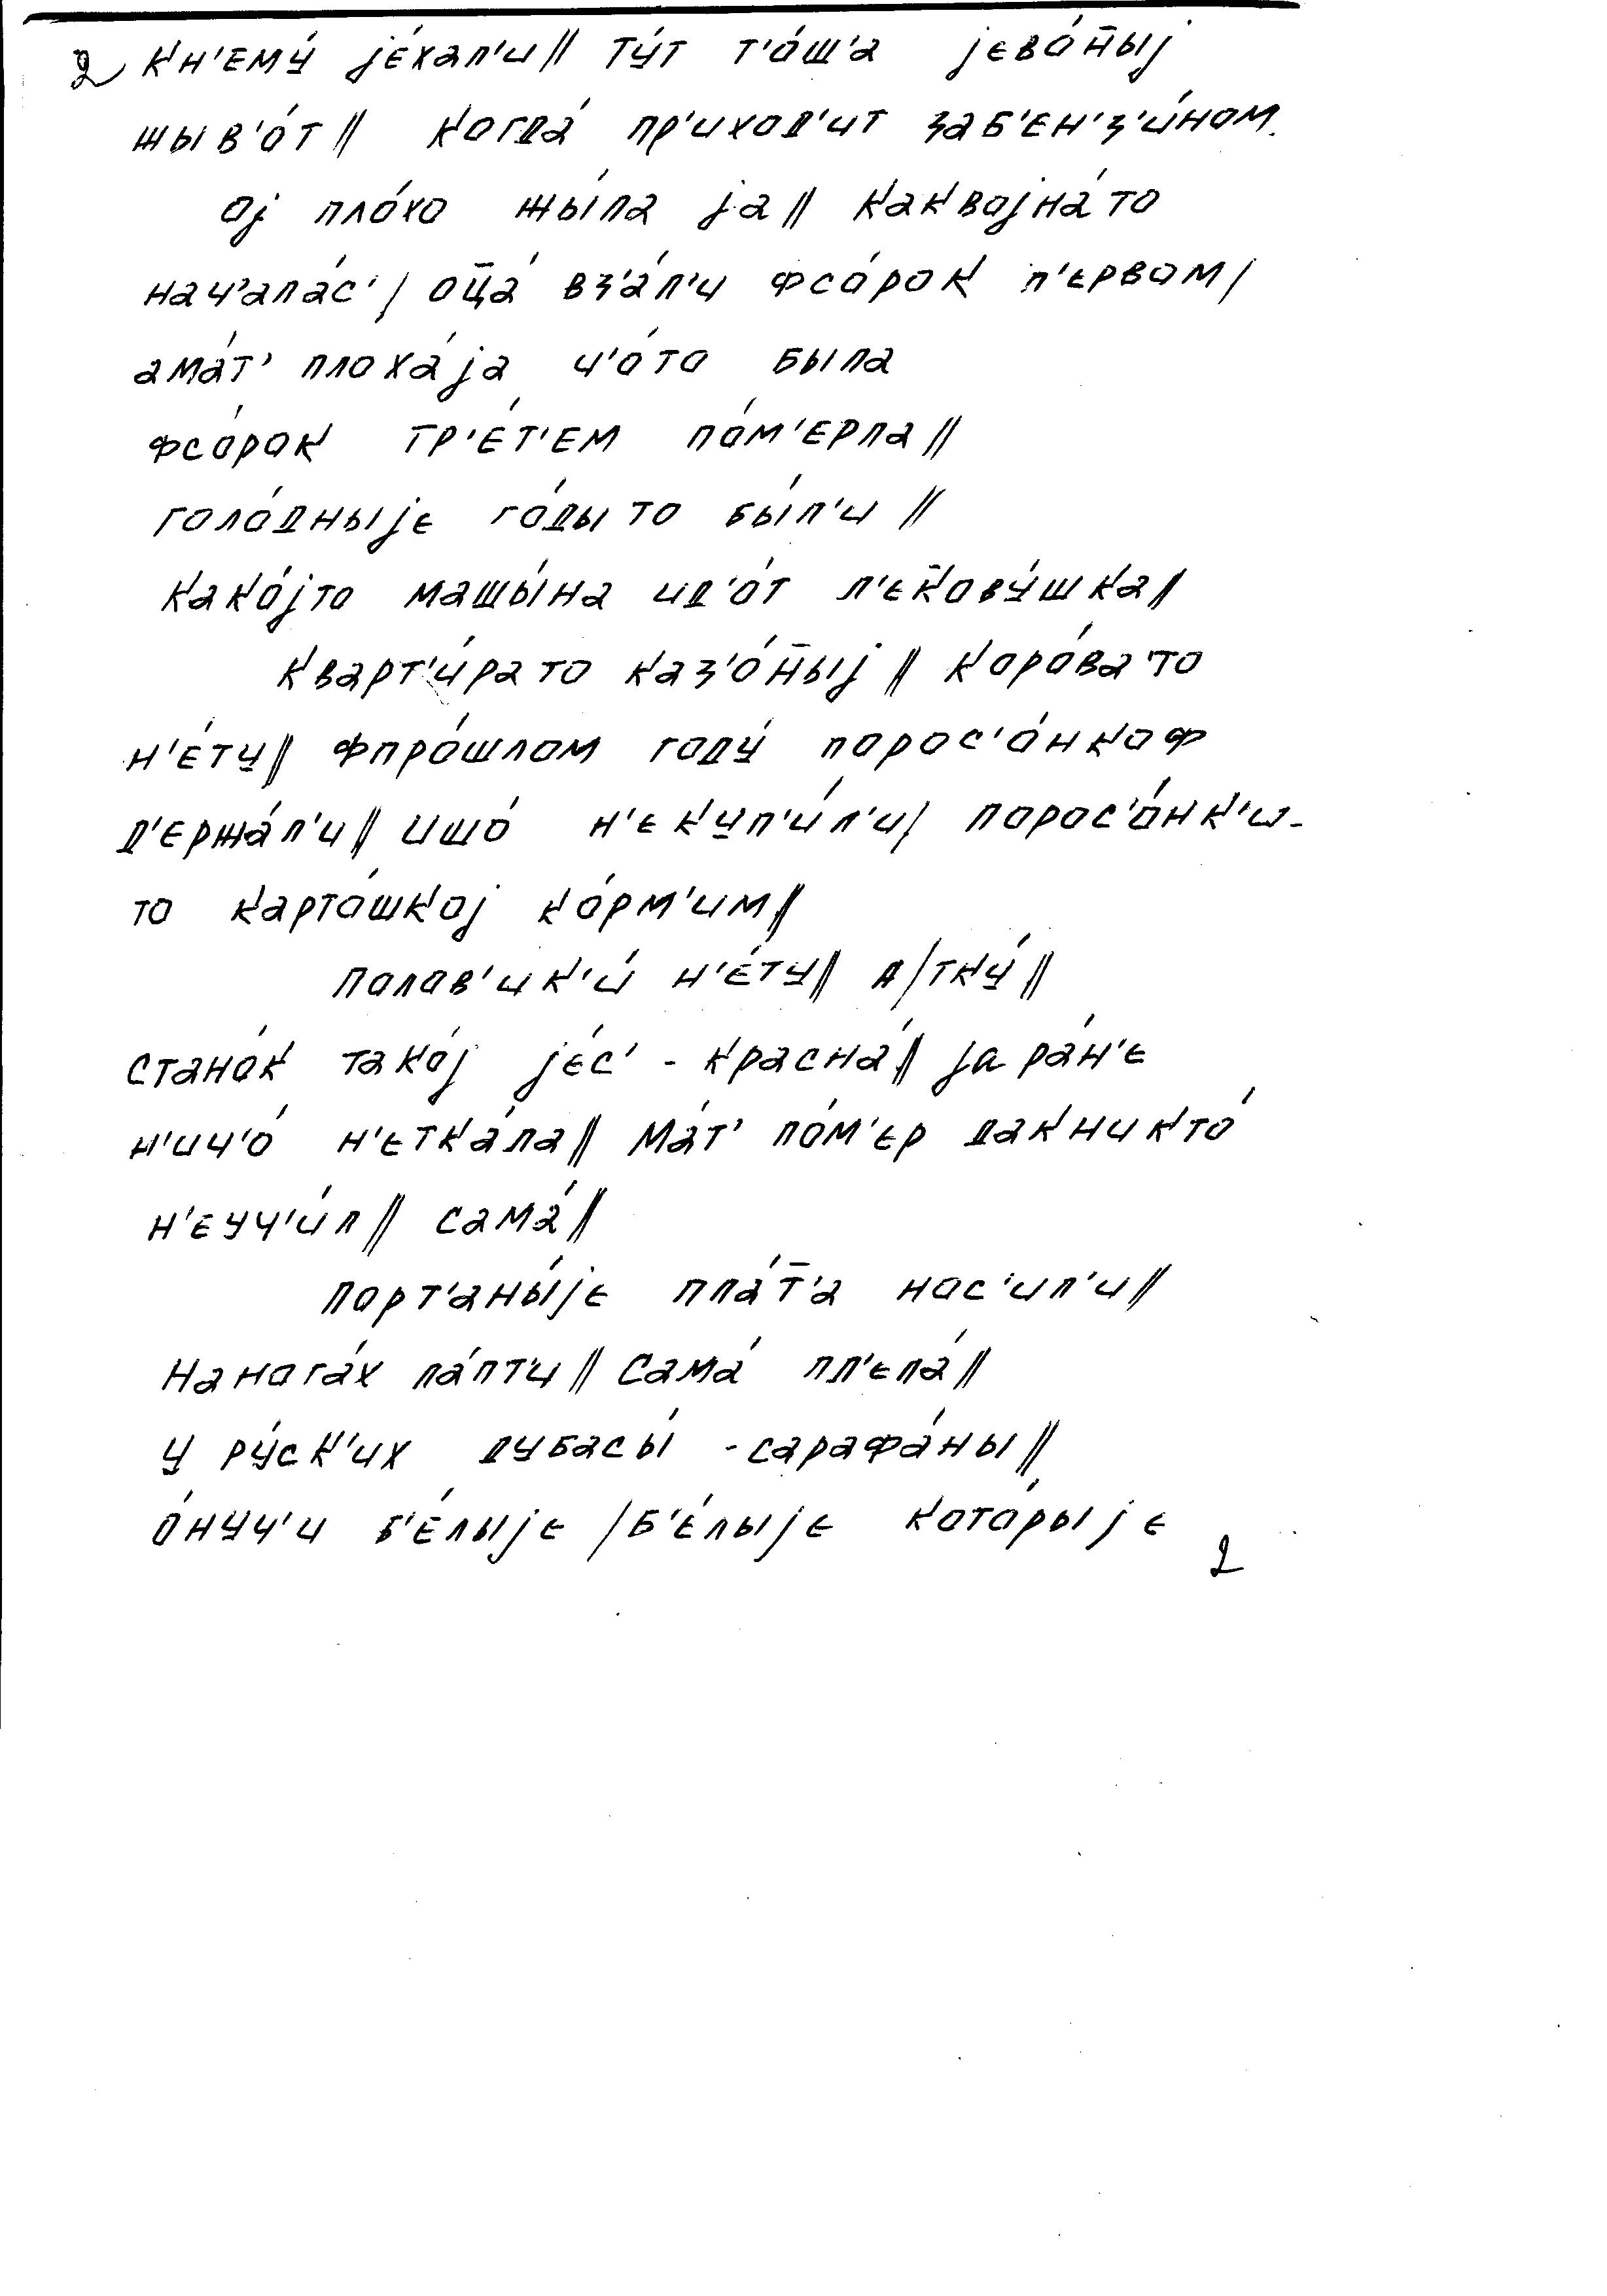 2 кн'ему́ jе́хал'и // ту́т т'о́ш'а jєво́н̄ыj
жыв'о́т // когда́ пр'иход'ит заб'єн'з'и́ном.
оj пло́хо жы́ла jа // как воjна́то
нач'ала́с' / оц̄а́ вз'а́л'и фсо́рок п'єрвом /
ама́т' плоха́jа ч'о́то была
фсо́рок тр'є́т'ем по́м'єрла //
голо́дныjє го́ды то бы́л'и //
како́jто машы́на ид'о́т л'єк̄ову́шка //
кварт'и́рато каз'о́н̄ыj // коро́ва'то
н'є́ту // фпро́шлом году́ порос'о́нкоф
д'єржа́л'и // ишо́ н'єкуп'и́л'и / порос'о́нк'и-
то карто́шкоj ко́рм'им //
полов'ик'и́ н'є́ту // л/тку́ //
стано́к тако́j jє́с' - красна́ // jа ра́н'є
н'ич'о́ н'єтка́ла // ма́т' по́м'єр дакникто́
н'єуч'и́л // сама́ //
порт'аны́jє пла́т̄'а нос'ил'и //
на нога́х ла́пт'и // сама́ пл'єла́ //
у ру́ск'их дубасы́ - сарафа́ны //
о́нуч'и б'є́лыjє / б'є́лыjє кото́рыjє
2